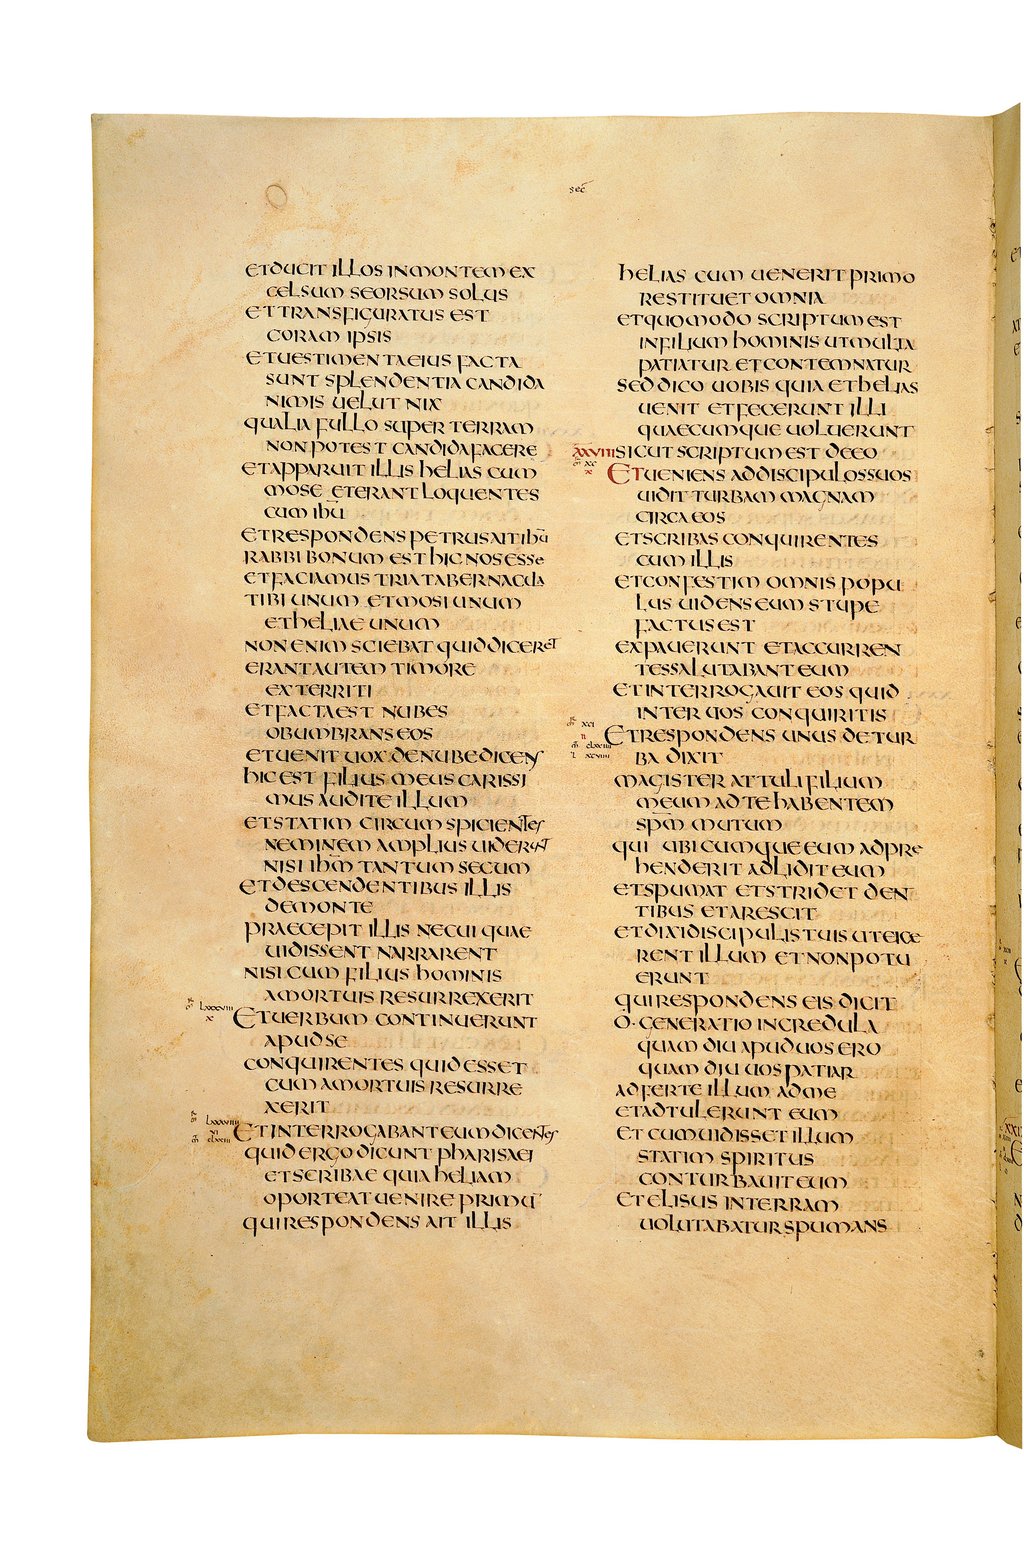 sec̄
ET DUCIT ILLOS IN MONTEM EX
CELSUM SEORSUM SOLUS
ET TRANSFIGURATUS EST
CORAM IPSIS
ET UESTIMENTA EIUS FACTA
SUNT SPLENDENTIA CANDIDA
NIMIS UELUT NIX
QUALIA FULLO SUPER TERRAM
NON POTEST CANDIDA FACERE
ET APPARUIT ILLIS HELIAS CUM
MOSE ET ERANT LOQUENTES
CUM IHU̅
ET RESPONDENS PETRUS AIT IHU̅
RABBI BONUM EST HIC NOS ESSE
ET FACIAMUS TRIA TABERNACULA
TIBI UNUM ET MOSI UNUM
ET HELIAE UNUM
NON ENIM SCIEBAT QUID DICERET
ERANT AUTEM TIMORE
EXTERRITI
ET FACTA EST NUBES
OBUMBRANS EOS
ET UENIT UOX DE NUBE DICENS
HIC EST FILIUS MEUS CARISSI
MUS AUDITE ILLUM
ET STATIM CIRCUMSPICIENTES
NEMINEM AMPLIUS UIDERUNT
NISI IHM̅ TANTUM SECUM
ET DESCENDENTIBUS ILLIS
DE MONTE
PRAECEPIT ILLIS NE CUI QUAE
UIDISSENT NARRARENT
NISI CUM FILIUS HOMINIS
A MORTUIS RESURREXERIT
LXXXVIII
X
ET UERBUM CONTINUERUNT
APUD SE
CONQUIRENTES QUID ESSET
CUM A MORTUIS RESURRE
XERIT
LXXXVIIII
VI
CLXXIII
ET INTERROGABANT EUM DICENTES
QUID ERGO DICUNT PHARISAEI
ET SCRIBAE QUIA HELIAM
OPORTEAT UENIRE PRIMU̅
QUI RESPONDENS AIT ILLIS
HELIAS CUM UENERIT PRIMO
RESTITUET OMNIA
ET QUOMODO SCRIPTUM EST
IN FILIUM HOMINIS UT MULTA
PATIATUR ET CONTEMNATUR
SED DICO UOBIS QUIA ET HELIAS
UENIT ET FECERUNT ILLI
QUAECUMQUE UOLUERUNT
XXVIII SICUT SCRIPTUM EST DE EO
XC
X
ET UENIENS AD DISCIPULOS SUOS
UIDIT TURBAM MAGNAM
CIRCA EOS
ET SCRIBAS CONQUIRENTES
CUM ILLIS
ET CONFESTIM OMNIS POPU
LUS UIDENS EUM STUPE
FACTUS EST
EXPAUERUNT ET ACCURREN
TES SALUTABANT EUM
ET INTERROGAUIT EOS QUID
INTER UOS CONQUIRITIS
XCI
II
ET RESPONDENS UNUS DE TUR
BA DIXIT
MAGISTER ATTULI FILIUM
MEUM AD TE HABENTEM
SPM̅ MUTUM
QUI UBICUMQUE EUM ADPRE
HENDERIT ADLIDIT EUM
ET SPUMAT ET STRIDET DEN
TIBUS ET ARESCIT
ET DIXI DISCIPULIS TUIS UT EICE
RENT ILLUM ET NON POTU
ERUNT
QUI RESPONDENS EIS DICIT
O · GENERATIO INCREDULA
QUAM DIU APUD UOS ERO
QUAM DIU UOS PATIAR
ADFERTE ILLUM AD ME
ET ADTULERUNT EUM
ET CUM UIDISSET ILLUM
STATIM SPIRITUS
CONTURBAUIT EUM
ET ELISUS IN TERRAM
UOLUTABATUR SPUMANS